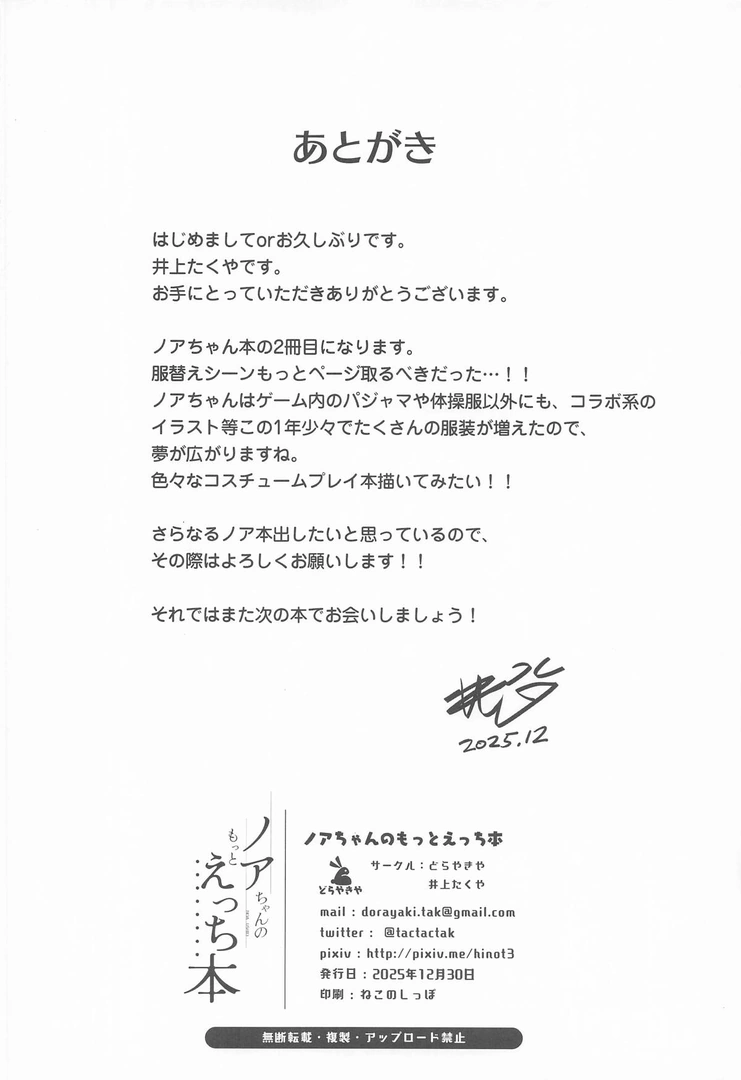 あとがき
はじめましてorお久しぶりです。
井上たくやです。
お手にとっていただきありがとうございます。
ノアちゃん本の2冊目になります。
服替えシーンもっとページ取るべきだった…！！
ノアちゃんはゲーム内のパジャマや体操服以外にも、コラボ系の
イラスト等この1年少々でたくさんの服装が増えたので、
夢が広がりますね。
色々なコスチュームプレイ本描いてみたい！！
さらなるノア本出したいと思っているので、
その際はよろしくお願いします！！
それではまた次の本でお会いしましょう！
2025.12
ノアちゃんの
もっと
えっち本
ノアちゃんのもっとえっち本
どらやきや
サークル：どらやきや
井上たくや
mail : dorayaki.tak@gmail.com
twitter : @tactactak
pixiv : http://pixiv.me/hinot3
発行日：2025年12月30日
印刷：ねこのしっぽ
無断転載・複製・アップロード禁止